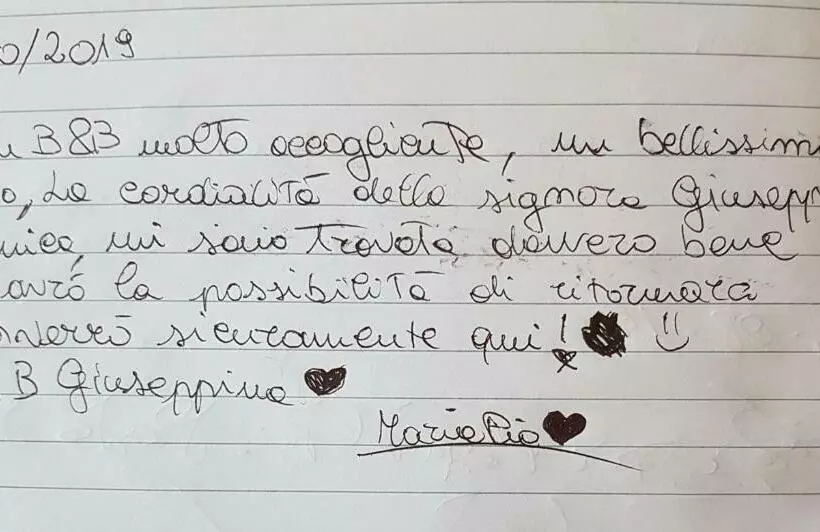 0/2019
B&B molto accogliente, un bellissim
o, La cordialità della signora Giusepp
nica, mi sono trovata davvero bene
avrò la possibilità di ritornara
verrò sicuramente qui!
B Giuseppina
Maria Pia